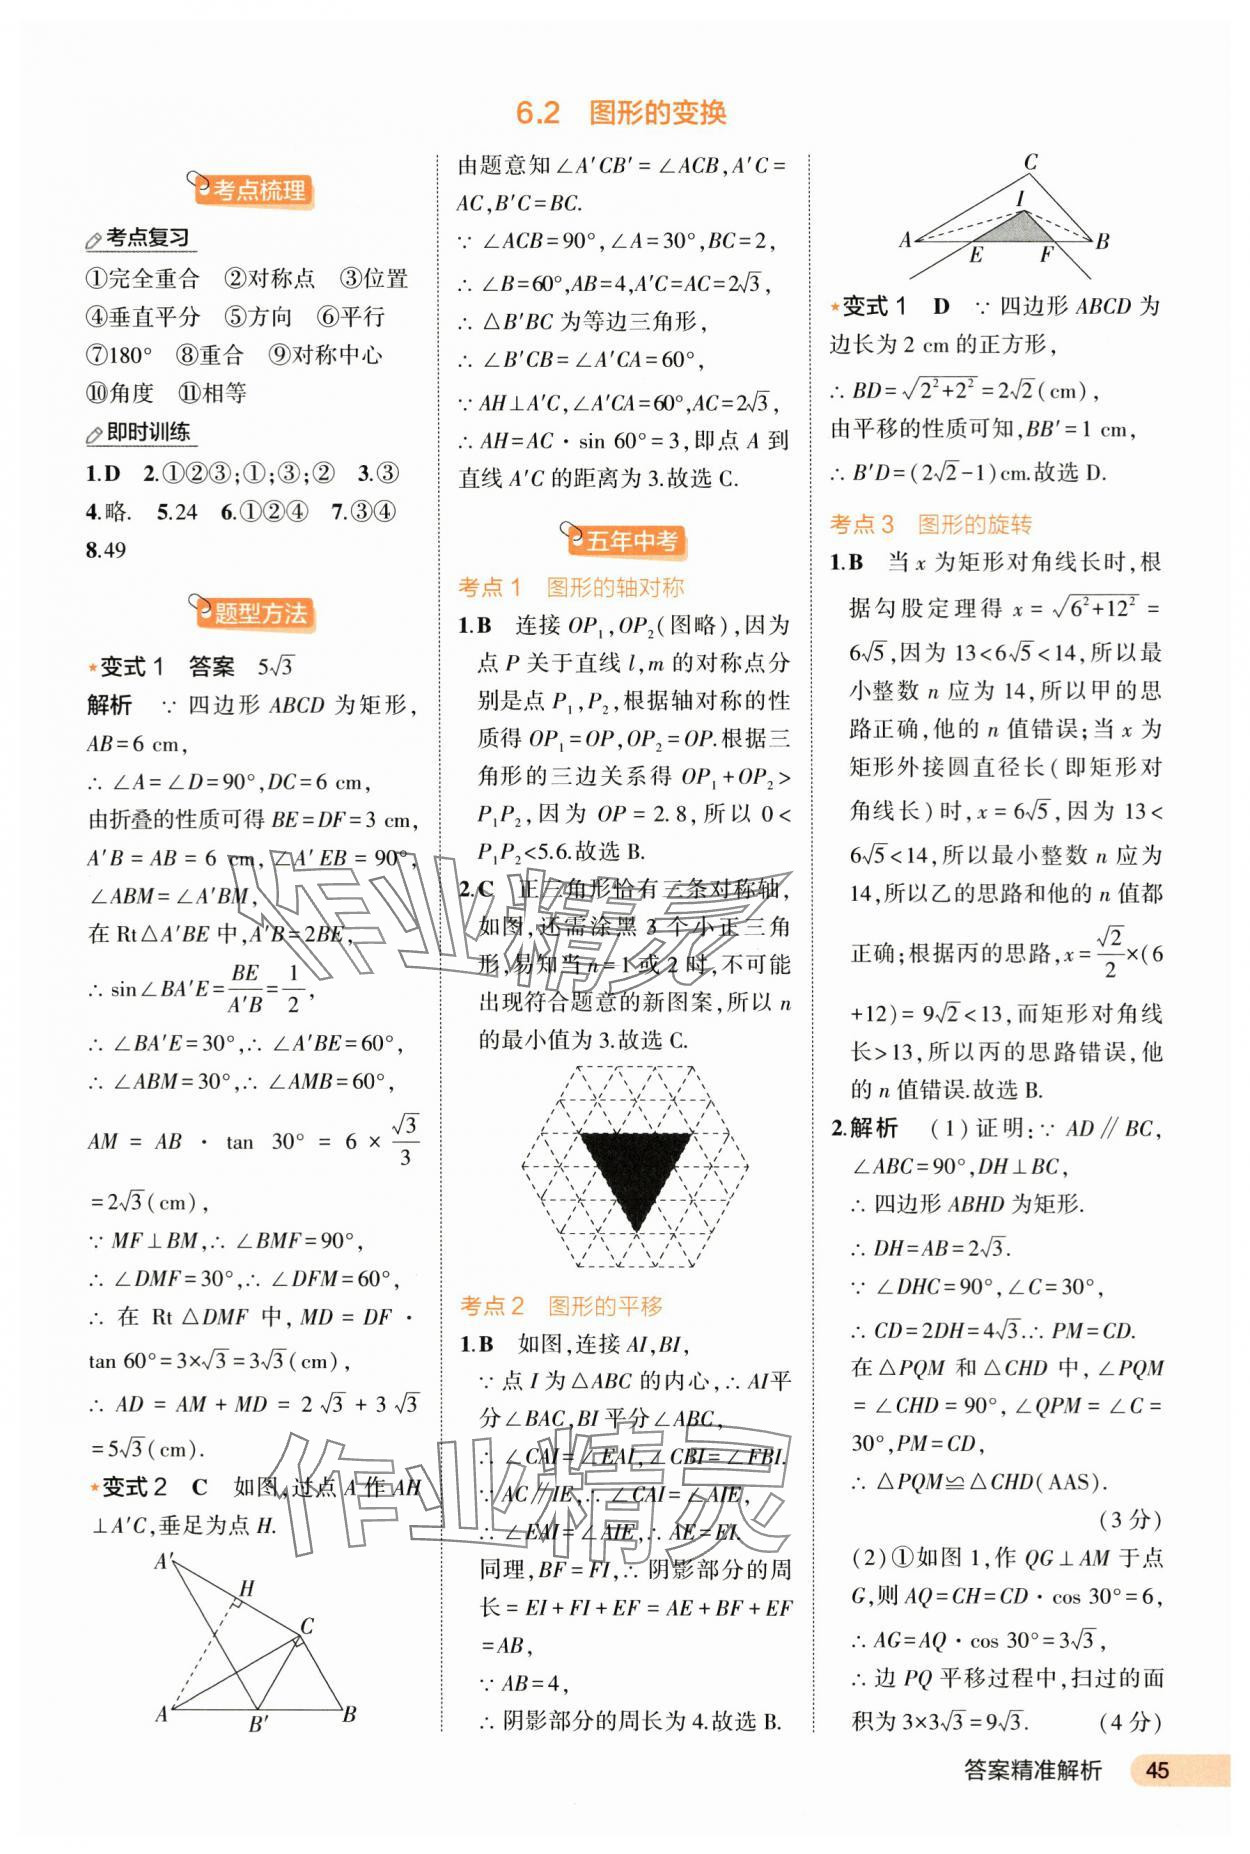 6.2 图形的变换
考点梳理
考点复习
①完全重合 ②对称点 ③位置
④垂直平分 ⑤方向 ⑥平行
⑦180° ⑧重合 ⑨对称中心
⑩角度 ⑪相等
即时训练
1.D 2.①②③;①;③;② 3.③
4.略. 5.24 6.①②④ 7.③④
8.49
题型方法
★变式1 答案 5√3
解析 ∵ 四边形 ABCD 为矩形,
AB=6 cm,
∴ ∠A=∠D=90°,DC=6 cm,
由折叠的性质可得 BE=DF=3 cm,
A′B=AB=6 cm,∠A′EB=90°,
∠ABM=∠A′BM,
在 Rt△A′BE 中,A′B=2BE,
∴ sin∠BA′E=BE/A′B=1/2,
∴ ∠BA′E=30°,∴ ∠A′BE=60°,
∴ ∠ABM=30°,∴ ∠AMB=60°,
AM = AB · tan 30° = 6 × √3/3
=2√3(cm),
∵ MF⊥BM,∴ ∠BMF=90°,
∴ ∠DMF=30°,∴ ∠DFM=60°,
∴ 在 Rt △DMF 中, MD = DF ·
tan 60°=3×√3=3√3(cm),
∴ AD = AM + MD = 2√3 + 3√3
=5√3(cm).
★变式2 C 如图,过点 A 作 AH
⊥A′C,垂足为点 H.
A′
H
C
A
B′
B
由题意知∠A′CB′=∠ACB,A′C=
AC,B′C=BC.
∵ ∠ACB=90°,∠A=30°,BC=2,
∴ ∠B=60°,AB=4,A′C=AC=2√3,
∴ △B′BC 为等边三角形,
∴ ∠B′CB=∠A′CA=60°,
∵ AH⊥A′C,∠A′CA=60°,AC=2√3,
∴ AH=AC·sin 60°=3,即点 A 到
直线 A′C 的距离为 3.故选 C.
五年中考
考点1 图形的轴对称
1.B 连接 OP₁,OP₂(图略),因为
点 P 关于直线 l,m 的对称点分
别是点 P₁,P₂,根据轴对称的性
质得 OP₁=OP,OP₂=OP.根据三
角形的三边关系得 OP₁+OP₂>
P₁P₂,因为 OP=2.8,所以 0<
P₁P₂<5.6.故选 B.
2.C 正三角形恰有三条对称轴,
如图,还需涂黑 3 个小正三角
形,易知当 n=1 或 2 时,不可能
出现符合题意的新图案,所以 n
的最小值为 3.故选 C.
考点2 图形的平移
1.B 如图,连接 AI,BI,
∵ 点 I 为△ABC 的内心,∴ AI平
分∠BAC,BI 平分∠ABC,
∴ ∠CAI=∠EAI,∠CBI=∠FBI.
∵ AC∥IE,∴ ∠CAI=∠AIE,
∴ ∠EAI=∠AIE,∴ AE=EI.
同理,BF=FI,∴ 阴影部分的周
长=EI+FI+EF=AE+BF+EF
=AB,
∵ AB=4,
∴ 阴影部分的周长为 4.故选 B.
C
I
A
E
F
B
★变式1 D ∵ 四边形 ABCD 为
边长为 2 cm 的正方形,
∴ BD=√(2²+2²)=2√2(cm),
由平移的性质可知,BB′=1 cm,
∴ B′D=(2√2-1)cm.故选 D.
考点3 图形的旋转
1.B 当 x 为矩形对角线长时,根
据勾股定理得 x=√(6²+12²)=
6√5,因为 13<6√5<14,所以最
小整数 n 应为 14,所以甲的思
路正确,他的 n 值错误;当 x 为
矩形外接圆直径长(即矩形对
角线长)时,x=6√5,因为 13<
6√5<14,所以最小整数 n 应为
14,所以乙的思路和他的 n 值都
正确;根据丙的思路,x=√2/2×(6
+12)=9√2<13,而矩形对角线
长>13,所以丙的思路错误,他
的 n 值错误.故选 B.
2.解析 (1)证明:∵ AD∥BC,
∠ABC=90°,DH⊥BC,
∴ 四边形 ABHD 为矩形.
∴ DH=AB=2√3.
∵ ∠DHC=90°,∠C=30°,
∴ CD=2DH=4√3.∴ PM=CD.
在△PQM 和△CHD 中,∠PQM
=∠CHD=90°,∠QPM=∠C=
30°,PM=CD,
∴ △PQM≌△CHD(AAS).
(3分)
(2)①如图 1,作 QG⊥AM 于点
G,则 AQ=CH=CD·cos 30°=6,
∴ AG=AQ·cos 30°=3√3,
∴ 边 PQ 平移过程中,扫过的面
积为 3×3√3=9√3. (4分)
答案精准解析 45
作业精灵
作业精灵